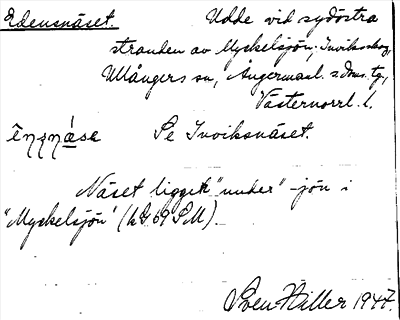 Edensnäset. Udde vid sydöstra
stranden av Myckelsjön, Inviksskog,
Ullångers sn, Ångermanl. s. doms. tg,
Västernorrl. l.
Se Inviksnäset.
Näset ligger "under" -jön i
"Myckelsjön" (hG 69 SM)
Sven Hiller 1947.